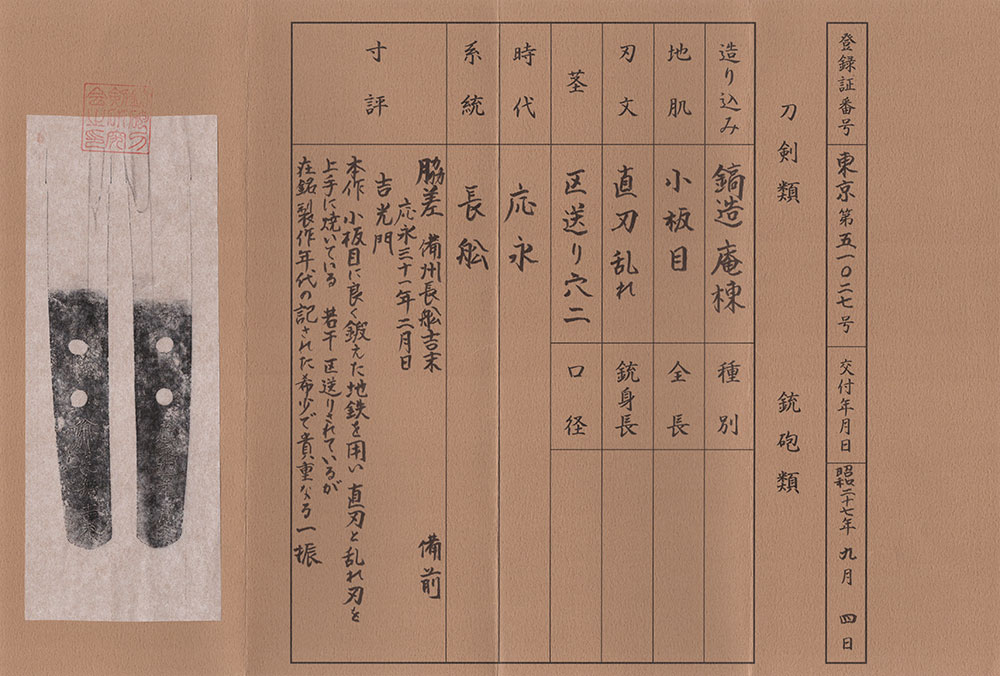 登録証番号 東京第五一〇二七号 交付年月日 昭和二十七年九月四日
刀剣類 銃砲類
造り込み 鎬造庵棟 種別
地肌 小板目 全長
刃文 直刃乱れ 銃身長
茎 区送り穴二 口径
時代 応永
系統 長舩
寸評
脇差 備州長舩吉末 備前
応永三十一年二月日
吉光門
本作 小板目に良く鍛えた地鉄を用い 直刃と乱れ刃を
上手に焼いている 若干区送りされているが
在銘製作年代の記された希少で貴重なる一振